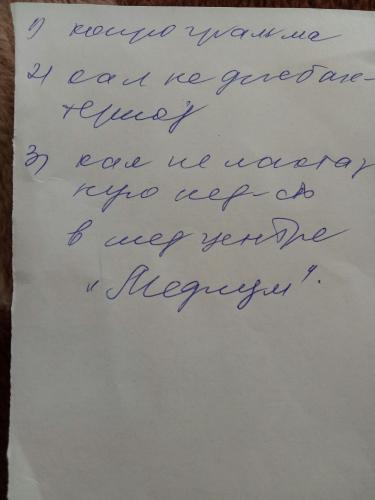 1) копрограмма
2) кал на дисбак-
териоз
3) кал на лактаз
ную нед-сть
в мед центре
"Медиум".